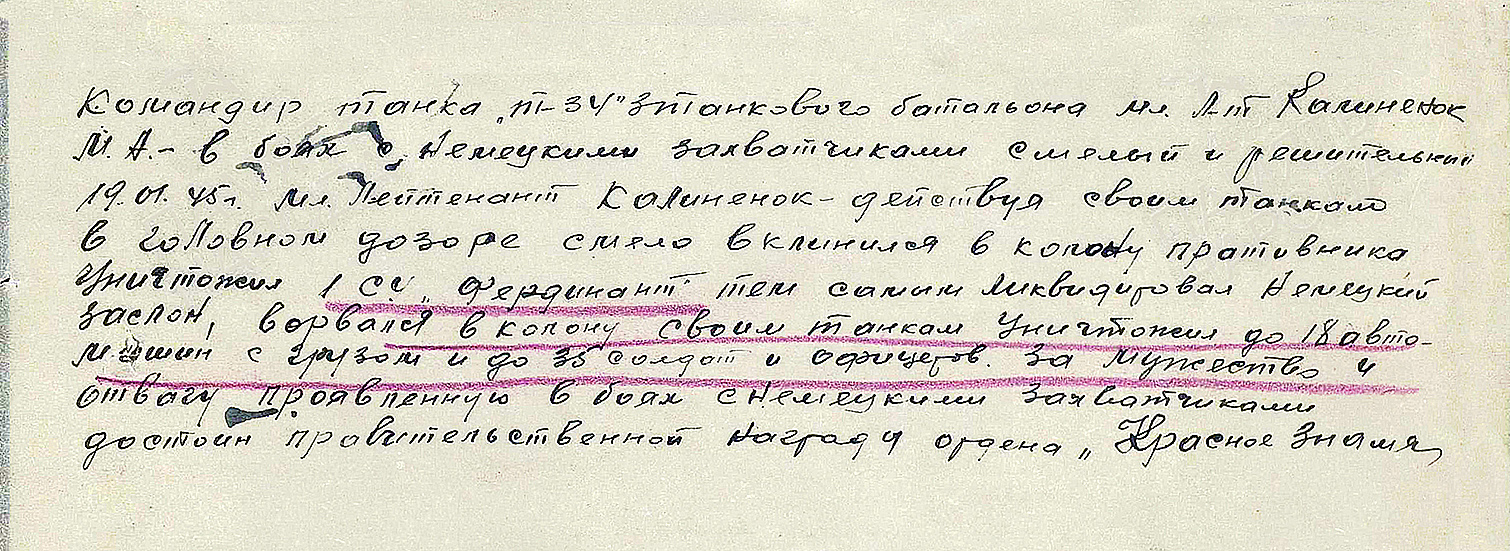 Командир танка „т-34" 3 танкового батальона мл. л-т Калиненок
М. А. - в боях с Немецкими захватчиками смелый и решительный
19.01.45г. мл. Лейтенант Калиненок - действуя своим танкам
в головном дозоре смело вклинился в колону пративника
Уничтожил 1 СУ „Фердинант" тем самым ликвидировал Немецкий
заслон, ворвался в колону своим танкам Уничтожил до 18 авто-
машин с грузом и до 35 солдат и офицеров. За мужество и
отвагу проявленную в боях с Немецкими захватчиками
достоин правительственной награды ордена „Красное Знамя